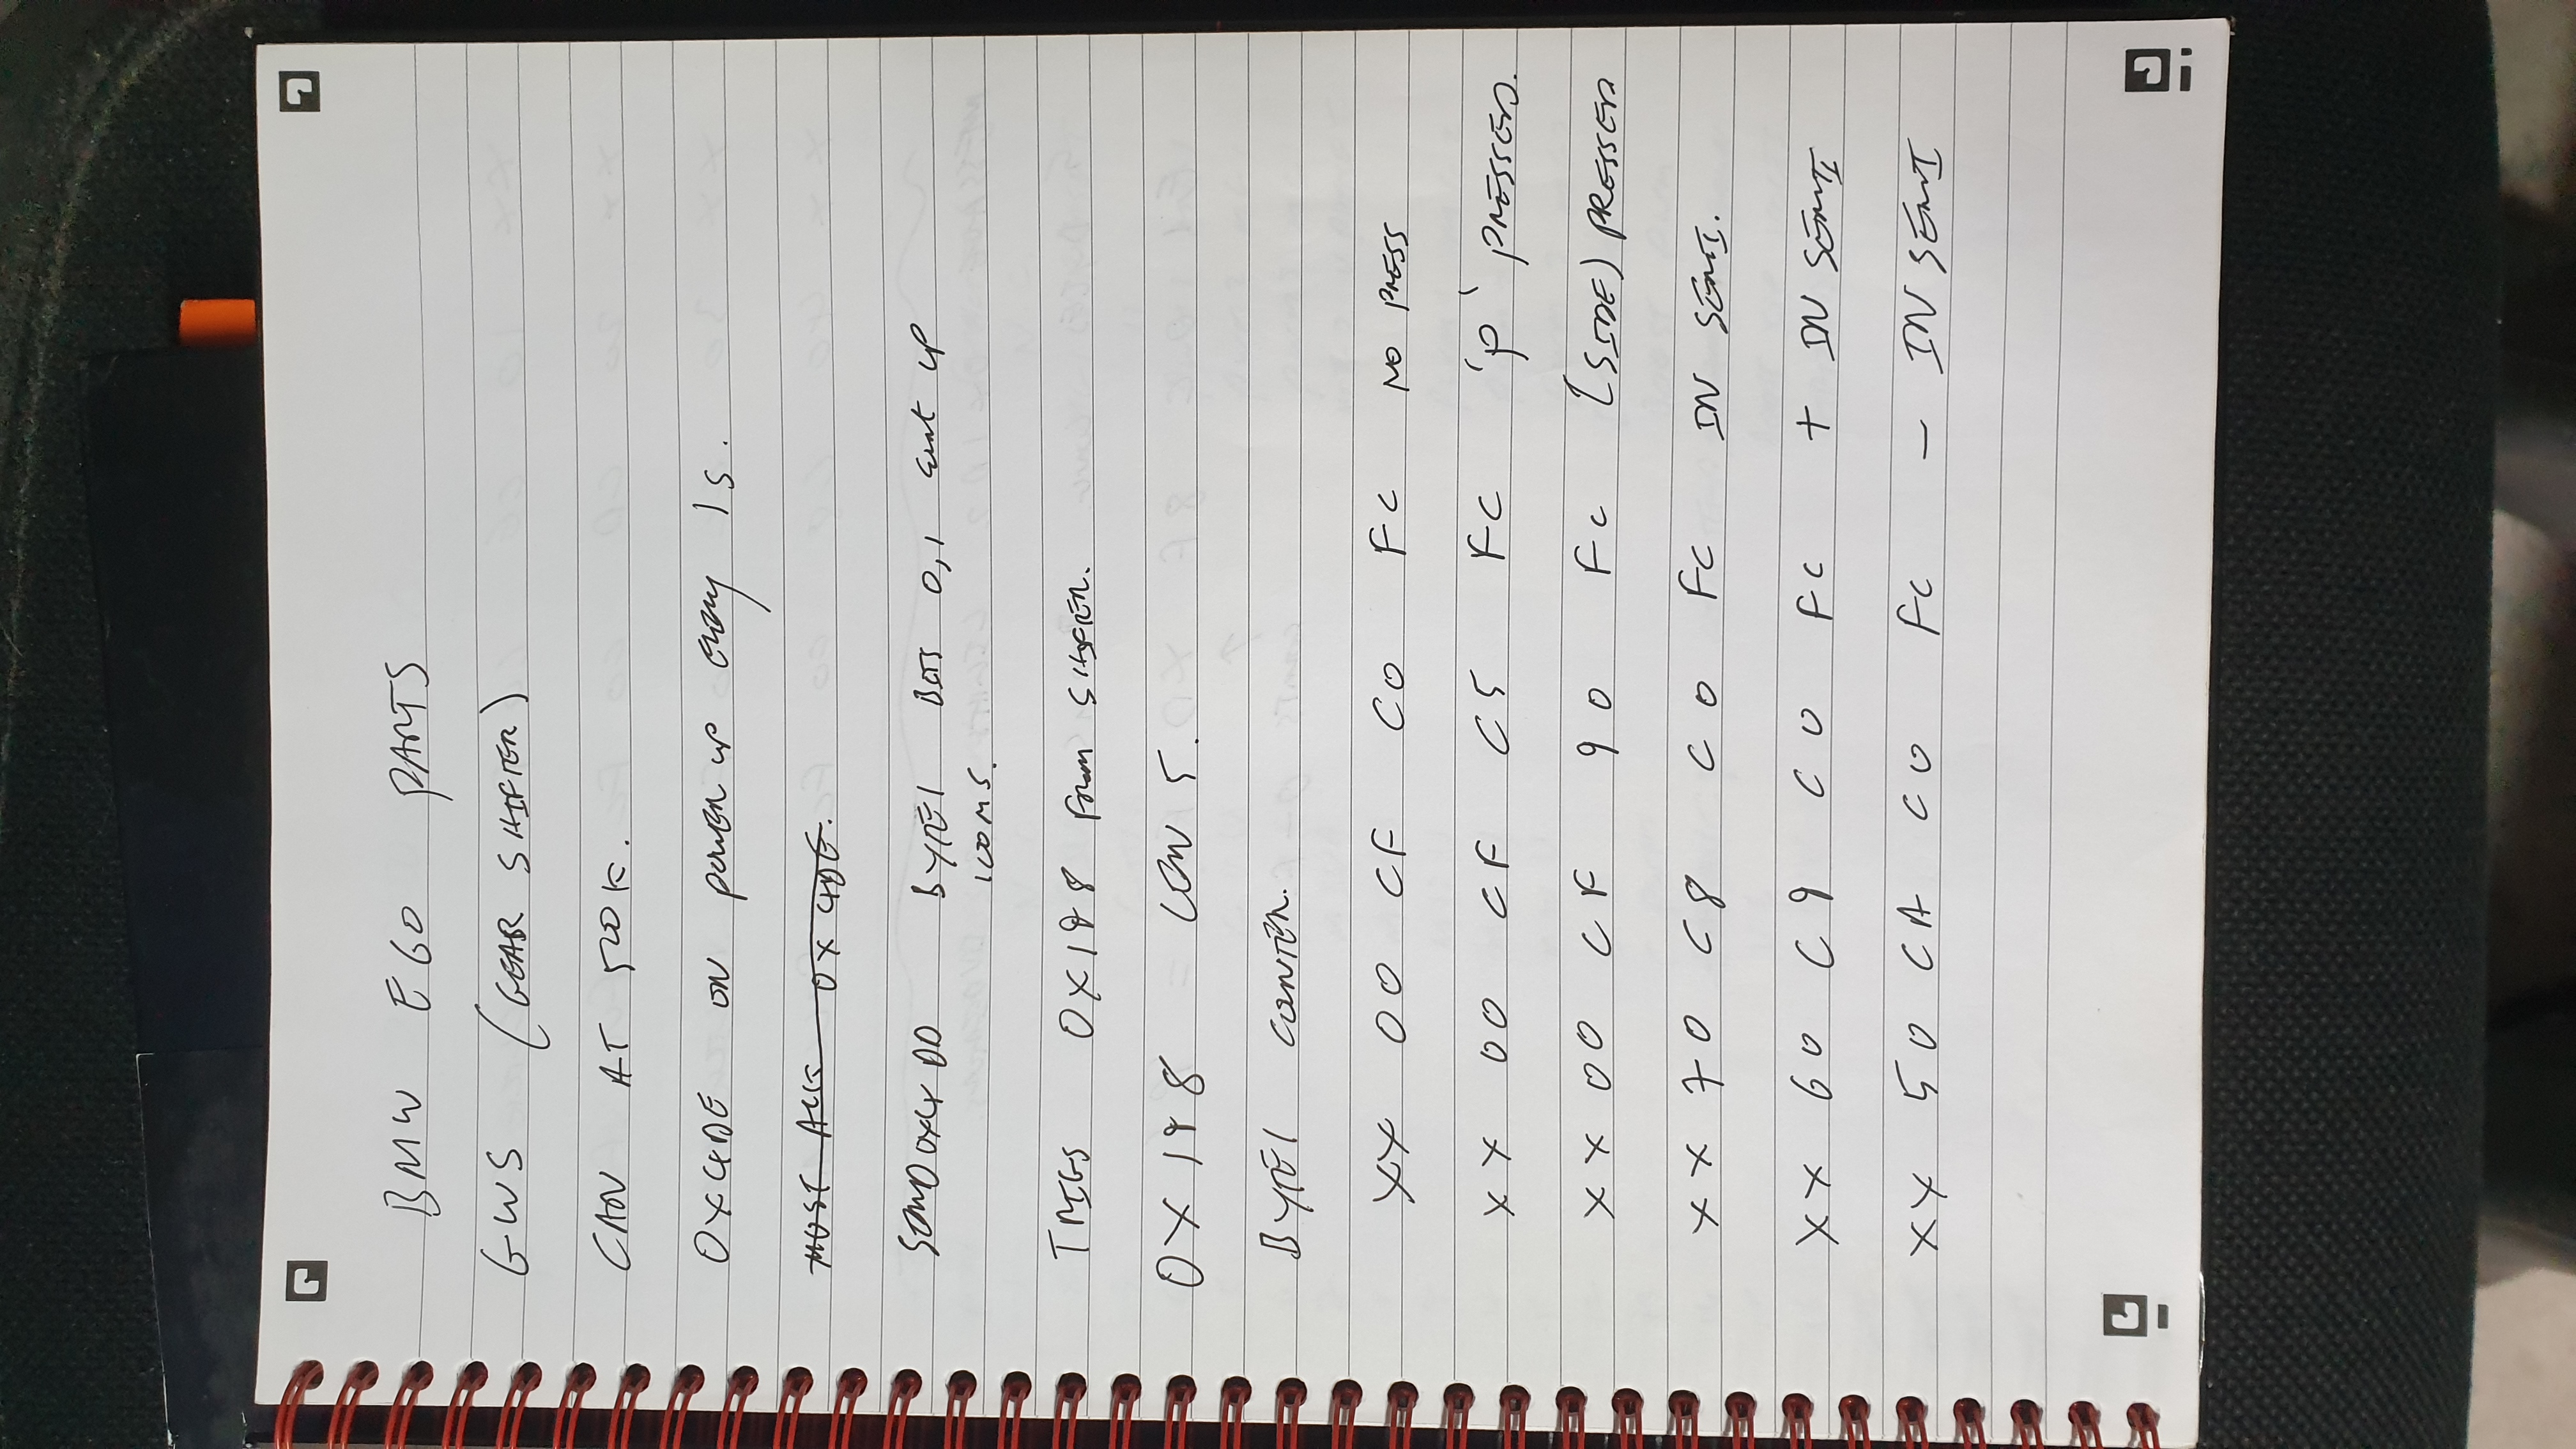 BMW E60 PARTS
GWS (GEAR SHIFTER)
CAN AT 500K.
0X4DE ON POWER UP EVERY 1S.
MUST ACK 0X4DE.
SEND 0X4DD BYTE1 BITS 0,1 COUNT UP
100MS.
TRIGS 0X198 FROM SHIFTER.
0X198 LEN 5.
BYTE1 COUNTER.
XX 00 CF C0 FC NO PRESS
XX 00 CF C5 FC 'P' PRESSED.
XX 00 CF 90 FC (SIDE) PRESSED
XX 70 C8 C0 FC IN SEMI.
XX 60 C9 C0 FC + IN SEMI
XX 50 CA C0 FC - IN SEMI